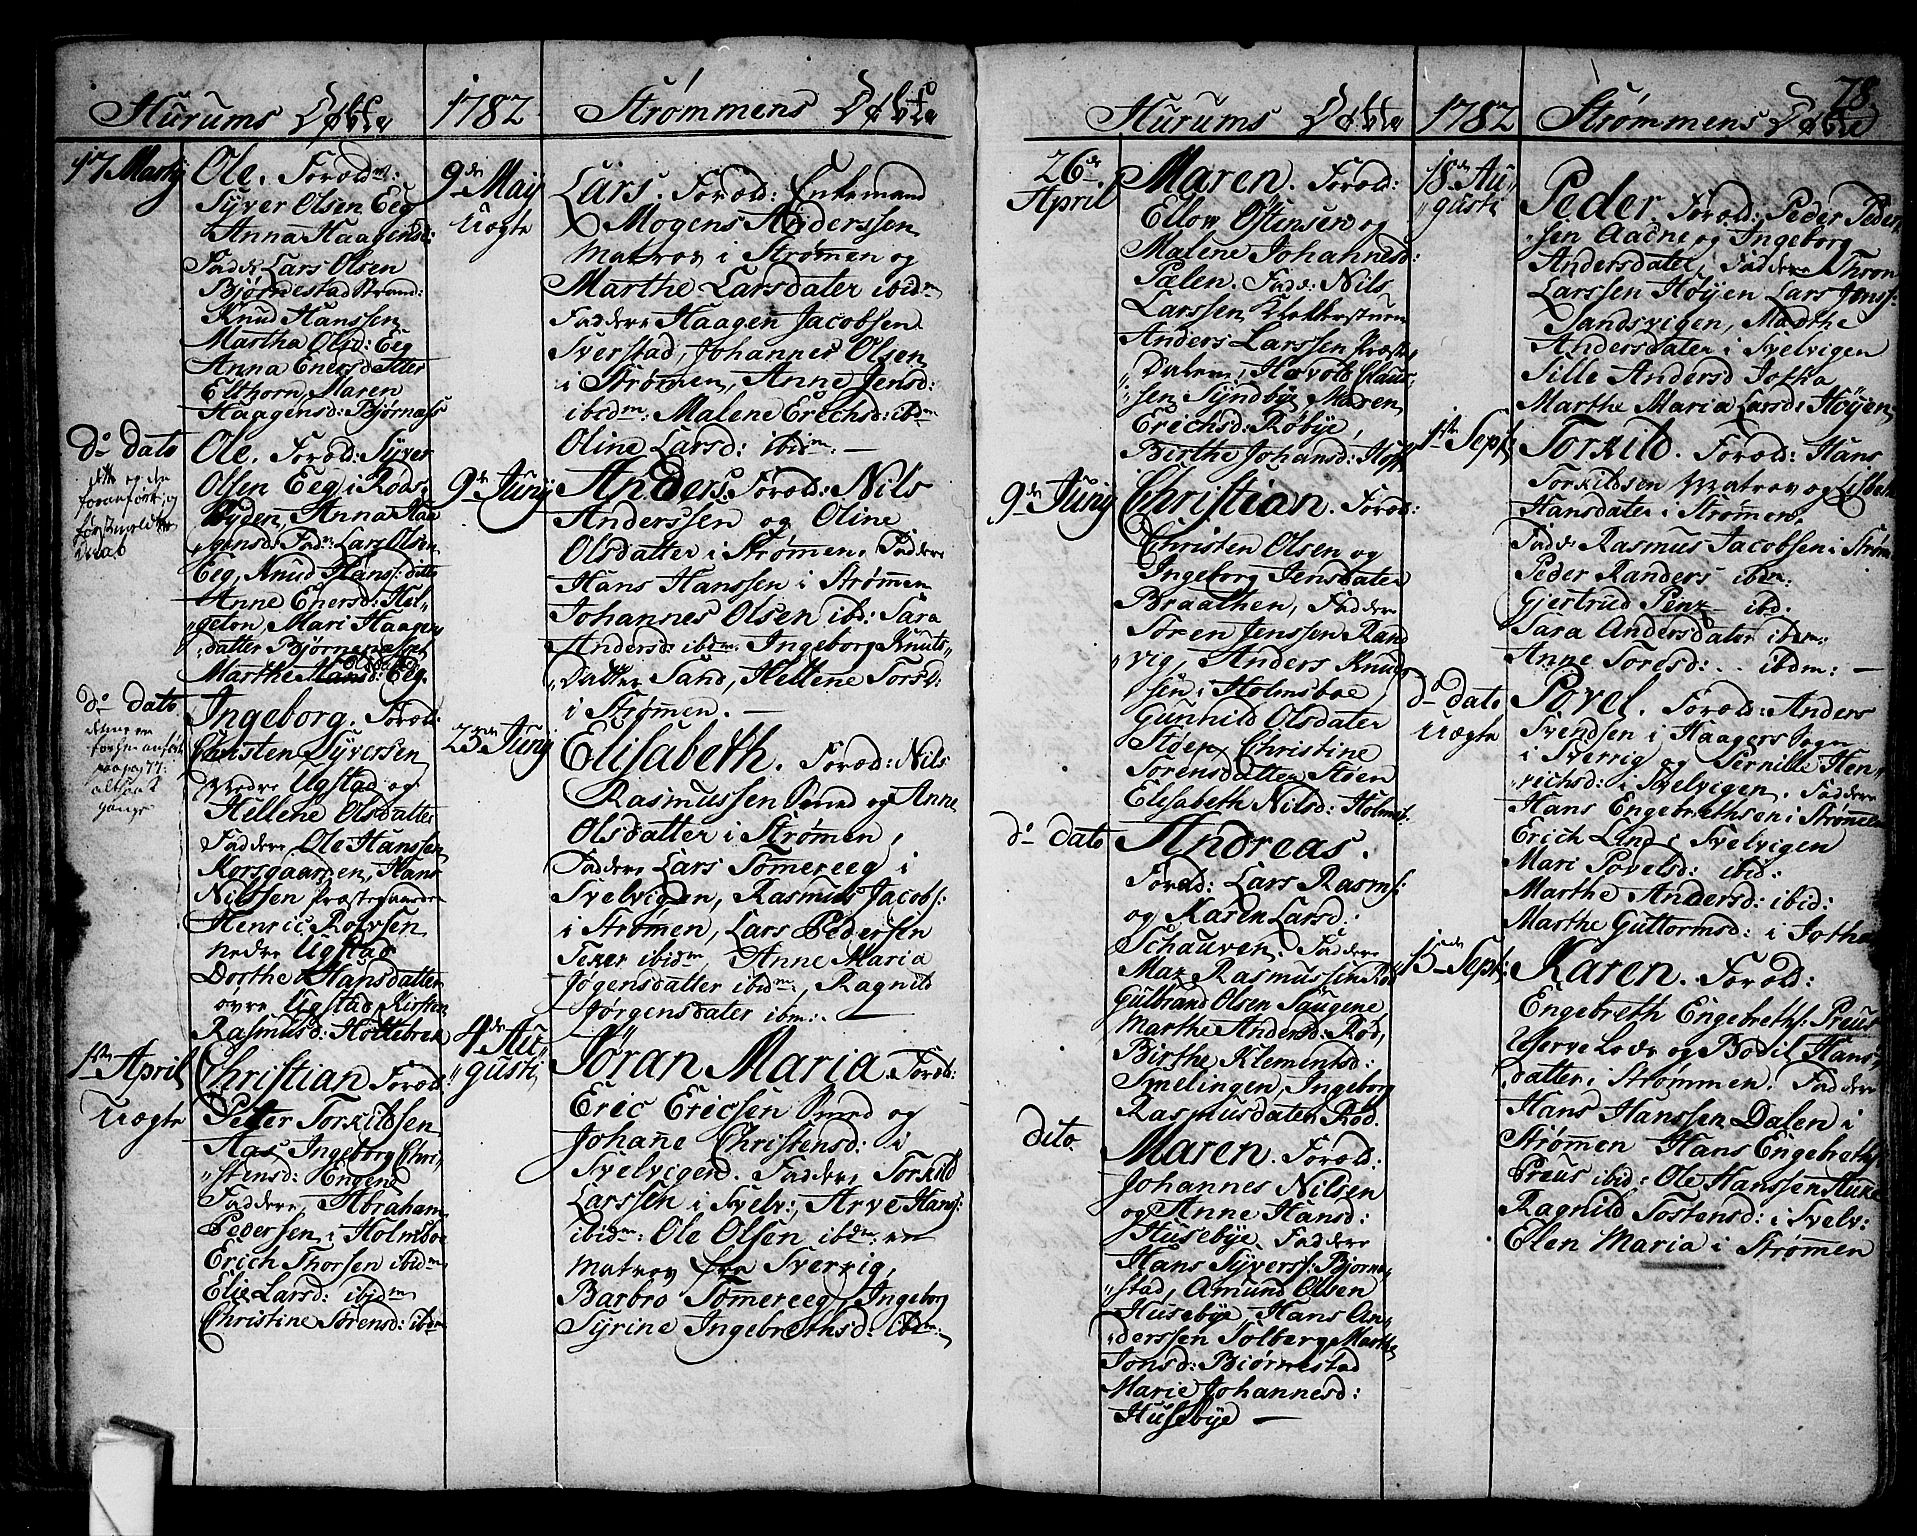 Hurums Døbte
17 Martij
Ole. Foræld:
Syver Olsen Eeg
Anna Haagensd:
Fadd: Lars Olsen
Bjørnestad Strand:
Knud Hanssen
Martha Olsd: Eeg
Anna Enersdatter
Elthorn, Maren
Haagensd: Bjørnass
Do dato
Ole. Foræld: Syver
Olsen Eeg i Røds
Anna Haa
gensd: Fad: Lars Olsen
Eeg, Knud Hans: ditto
Anne Enersd: Hel
geton, Mari Haagen
datter Bjørnenasset
Marthe Olsdatter Eeg.
Do dato
Ingeborg. Foræld:
Christen Syverssen
Nedre Ugstad og
Hellene Olsdatter
Faddere Ole Hanssen
Korsgaarden, Hans
Nilssen Præstegaarden
Henric Rolvsen
nedre Ugstad
Dorthe Hansdatter
øvre Ugstad, Kirsten
Rasmusd: Holtebrek
1ste April
Uægte
Christian Foræld:
Peter Torkildsen
Aas, Ingeborg Chri
stensd: Engene
Faddere, Abraham
Pedersen i Holmsboe
Erich Thorsen ibidm
Elie Larsd: ibidm
Christine Sørensd: ibdm
1782
Strømmens Døbte
9de Maij
Uægte
Lars. Foræld: Enkemand
Mogens Anderssen
Matros i Strømen og
Marthe Larsdater ibidm
Faddere Haagen Jacobsen
Sverstad, Johannes Olsen
i Strømen, Anne Jensd:
ibidm: Malene Erichsd: ibdm
Oline Larsd: ibidm. —
9de Junij
Anders. Foræld: Nils
Anderssen og Oline
Olsdatter i Strømen. Faddere
Hans Hanssen i Strømen
Johannes Olsen ibd: Sara
Andersd: ibdm: Ingeborg Knuts
Datter Sand, Hellene Torsd:
i Strømen. —
23de Junij
Elisabeth. Foræld: Nils
Rasmussen Smed og Anne
Olsdatter i Strømen,
Faddere Lars Tømereeg i
Svelvigen, Rasmus Jacobs:
i Strømen, Lars Pedersen
ibidm, Anne Maria
Jørgensdatter ibidm:, Ragnild
Jørgensdater ibm:. —
4de Au
gusti
Jøran Maria. Foræld:
Eric Ericsen Smed og
Johane Christensd: i
Svelvigen. Faddere Torkild
Larssen i Svelv:, Arve Hans:
ibidm: Ole Olsen ibidm: en
Matros fra Sverrig,
Barbro Tømereeg, Ingeborg
Syrine Ingebrethsd: ibdm:
Hurums Døbte
26de
April
Maren. Foræld:
Ellov Østensen og
Malene Johannesd:
Pælen. Fad: Nils
Larssen Klokkerstuen
Anders Larssen Præste
Dalen, Havold Claus
sen Syndbye, Maren
Erichsd: Røbye,
Birthe Johansd: Hoft
9de Junij
Christian. Foræld:
Christen Olsen og
Ingeborg Jensdater
Braathen, Faddere
Søren Jenssen Rand
vig, Anders Knud
sen i Holmsboe
Gunnild Olsdater
Støen, Christine
Sørensdatter Støen
Elesabeth Nilsd: Holmsb.
Do dato
Andreas.
Foræld: Lars Rasms:
og Karen Larsd:
Schauven. Faddere
Maz Rasmussen Rød
Gulbrand Olsen Saugene,
Marthe Andersd: Rød,
Birthe Klementsd:
Smelingen, Ingeborg
Rasmusdater Rød.
dito.
Maren. Foræld:
Johannes Nilsen
og Anne Hansd:
Husebye. Faddere
Hans Syverss: Bjørne
stad, Amund Olsen
Husebye, Hans An
derssen Solberg, Marthe
Jonsd: Biørnestad
Marie Johannesd:
Husebye —
1782
Strømmens Døbte
78
18de Au
gusti
Peder. Foræld: Peder Peder
sen Aadne og Ingeborg
Andersdater, Faddere Thron
Larssen Høyen Lars Jonss:
Sandsvigen, Marthe
Andersdater i Svelvigen
Sille Andersd Jotha
Marthe Maria Larsd: Høyen,
1ste Sept;
Torkild. Foræld: Hans
Torkildsen Matros og Lisbeth
Hansdater i Strømen.
Fadd: Rasmus Jacobsen i Strøm
Peder Randers ibdm:
Gjertrud Penz ibd.
Sara Andersdater ibm:
Anne Toresd: .. ibdm: —
Do dato
Uægte
Povel. Foræld: Anders
Svendsen i Haagers Sogn
i Sverrig og Pernille Hen
richsd: i Svelvigen. Faddere
Hans Engebrethsen i Strømen
Erich Lind i Svelvigen
Mari Povelsd: ibid:
Marthe Andersd: ibid:
Marthe Guttormsd: i Jotha
15de Sept:
Karen. Foræld:
Engebreth Engebreths: Preus
Reserve Lods og Bodil Hans
datter i Strømmen. Faddere
Hans Hanssen Dalen i
Strømen Hans Engebreths:
Preus ibid: Ole Hanssen Auke
Ragnild Tostensd: i Svelv:
Elen Maria i Strømen